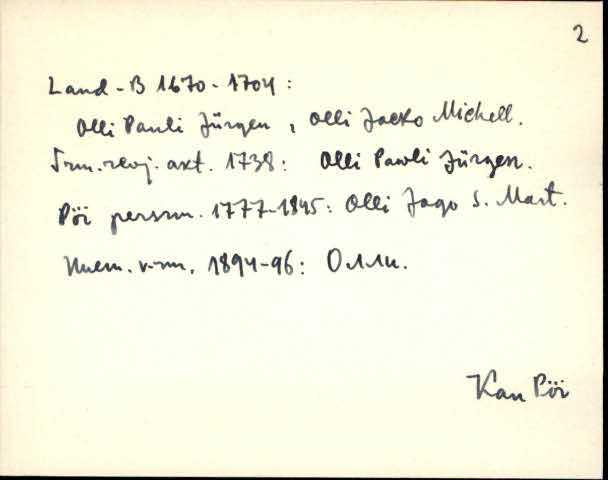 2
Land-B 1670-1704:
Olli Pauli Jürgen, Olli Jacko Michell.
revij. akt. 1738: Olli Pawli Jürgen.
Pöi persrm. 1777-1845: Olli Jago S. Mart.
v-rm. 1894-96: Олли.
Kan Pöi